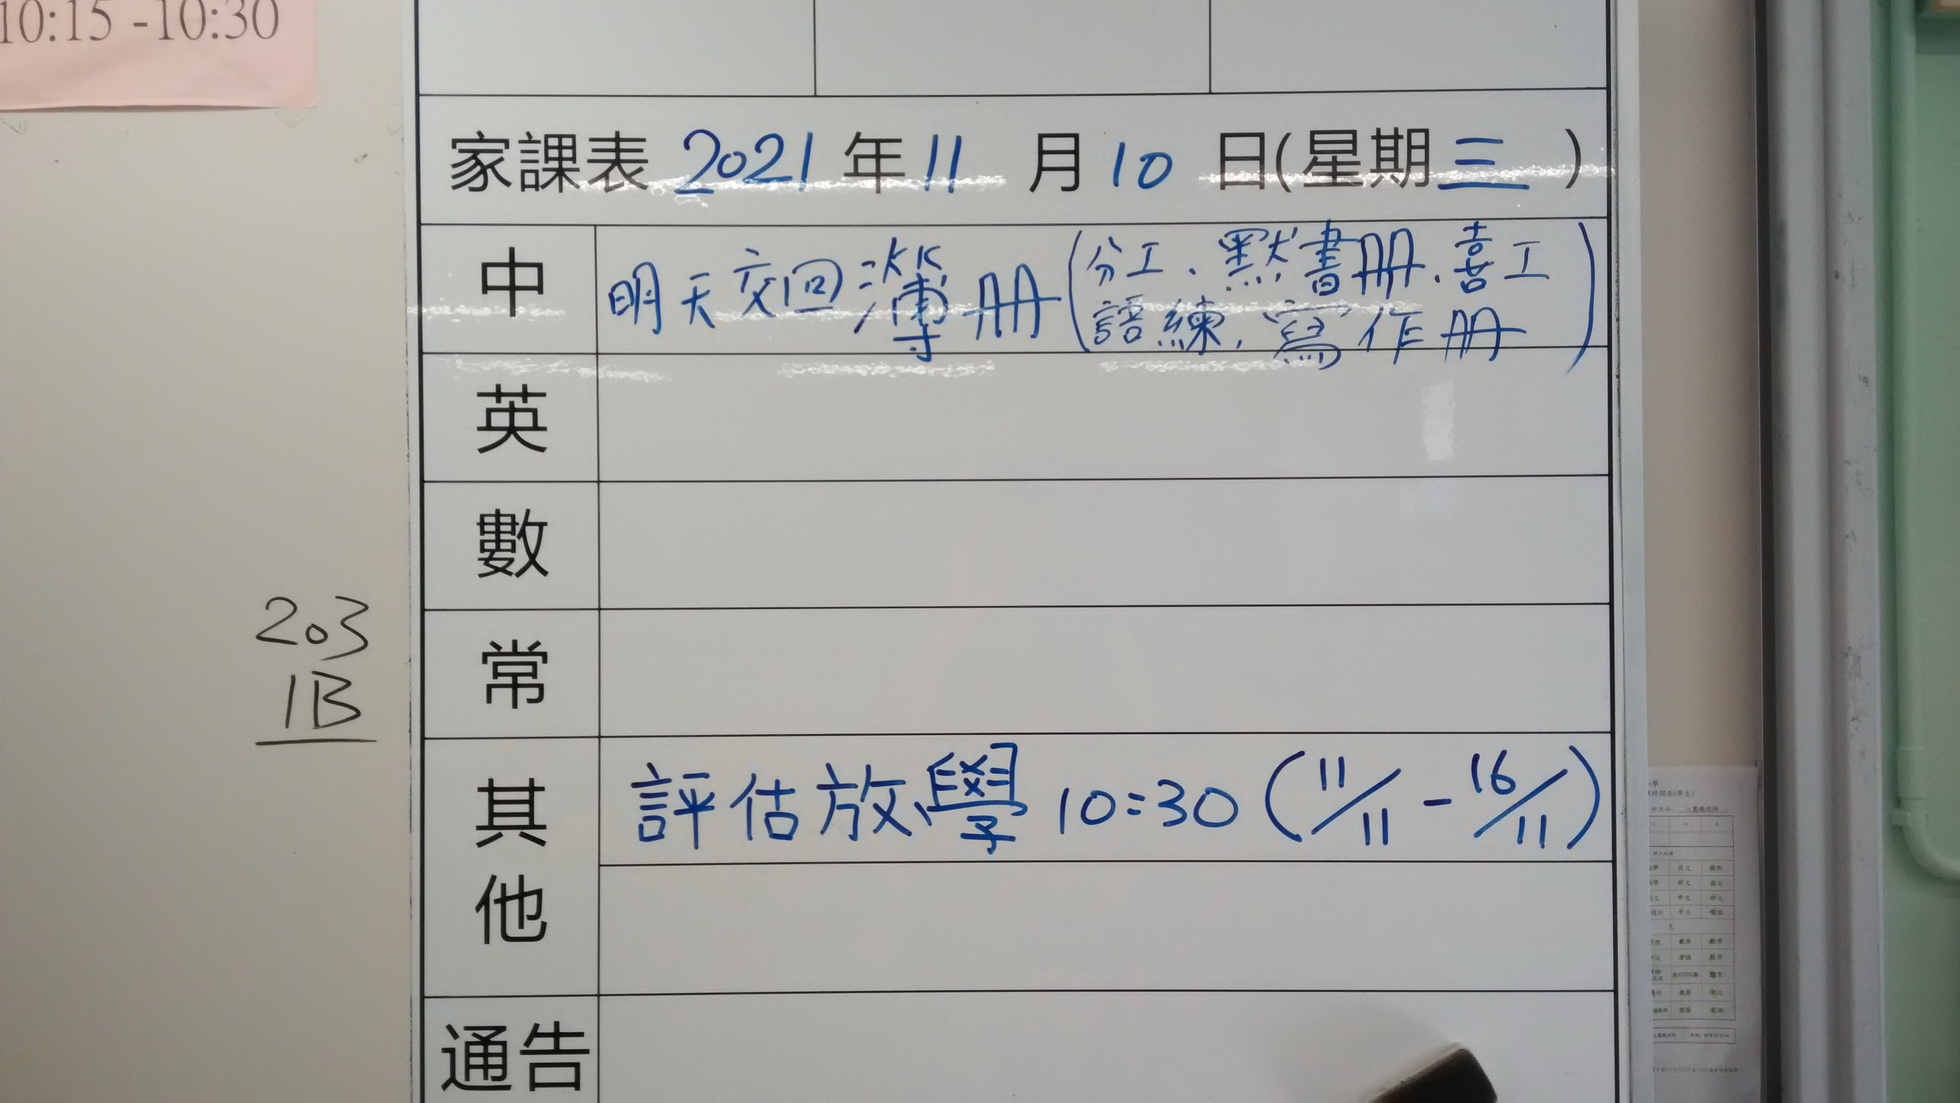 10:15 -10:30
家課表 2021 年 11 月 10 日(星期三)
中
明天交回簿冊(分工、默書冊、喜工
語練,寫作冊)
英
數
203
1B
常
其他
評估放學 10:30 (11/11 - 16/11)
通告